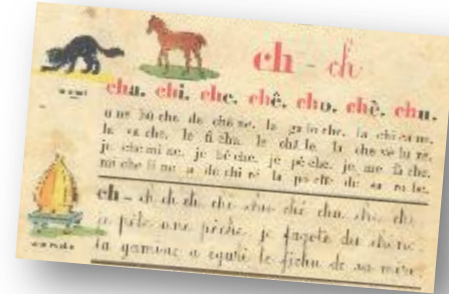 ch - ch
cha. chi. che. chê. cho. chè. chu.
u ne bû che de chê ne. la ga lo che. la chi ca ne.
la va che. le fi chu. le châ le. la che ve lu re.
je che mi ne. je bê che. je pê che. je me fâ che.
mi che li ne a dé chi ré la po che de sa ro be.
ch - ch ch ch. che cho ché chu. che. chi
je pèle une pêche. je fagote du chêne
la gamine a égaré le fichu de sa mère